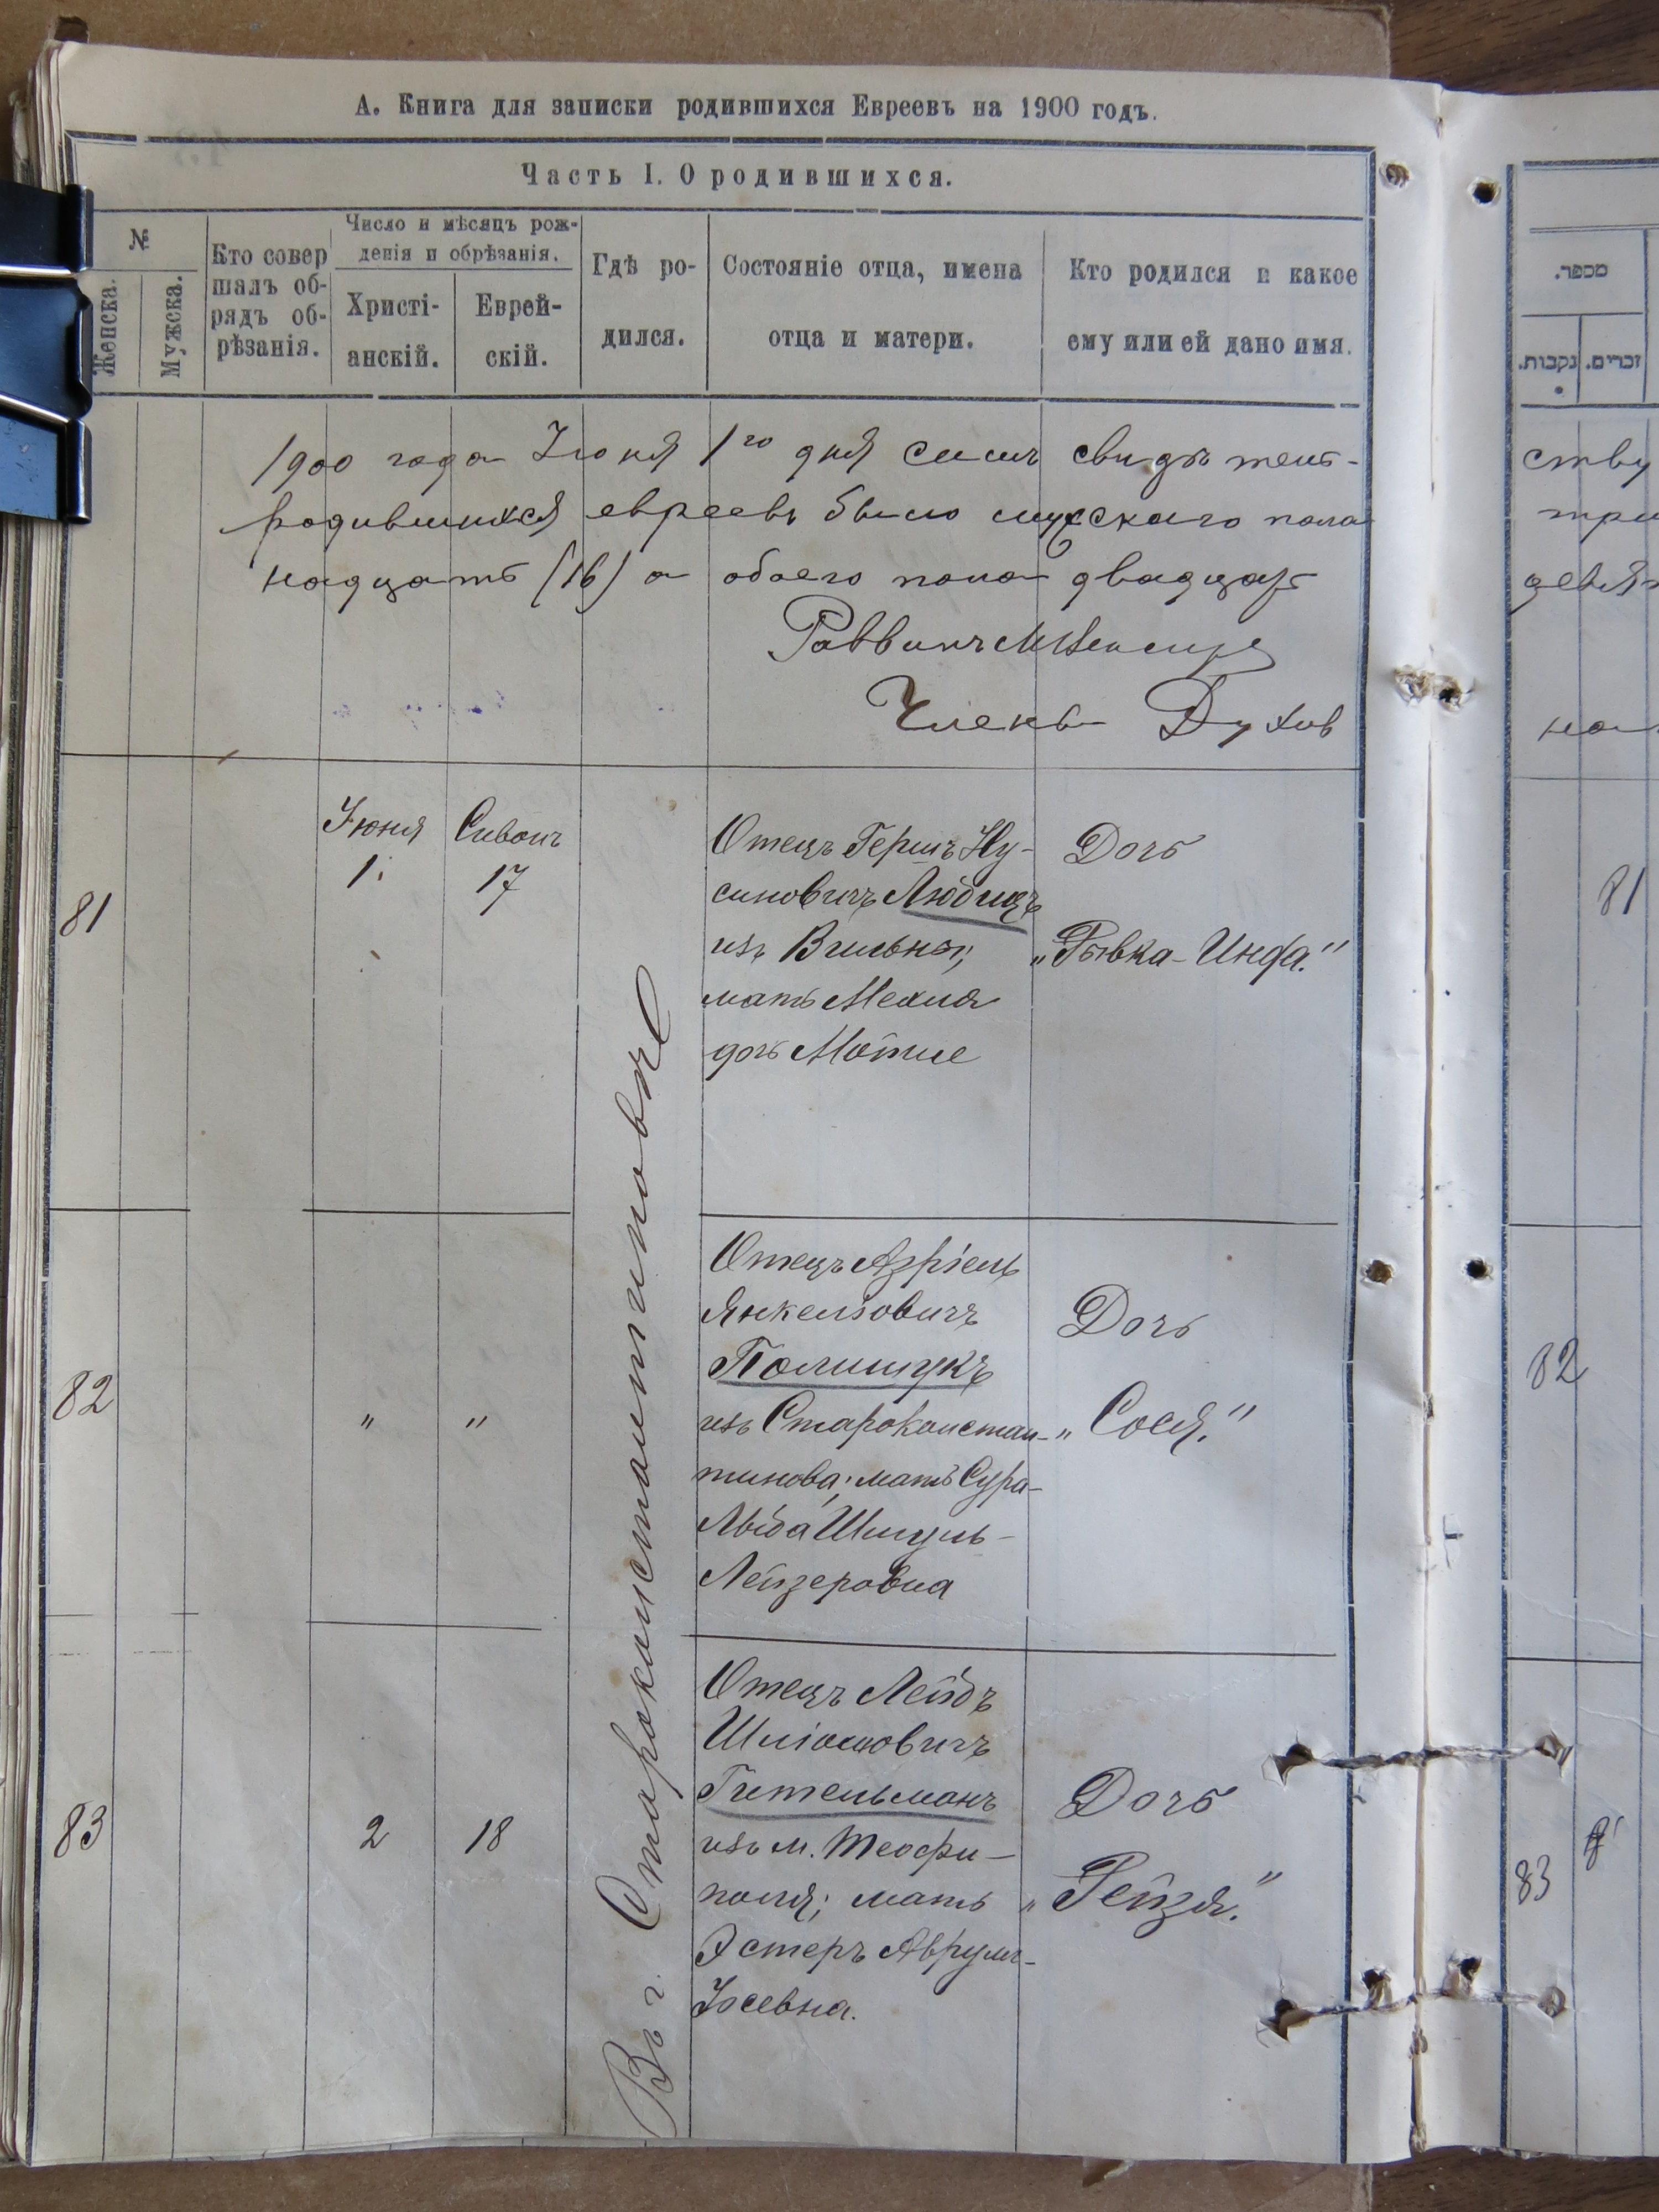 А. Книга для записки родившихся Евреевъ на 1900 годъ.
Часть I. О родившихся.
№
Женска.
Мужска.
Кто совер
шалъ об-
рядъ об-
рѣзанія.
Число и мѣсяцъ рож-
денія и обрѣзанія.
Христі-
анскій.
Еврей-
скій.
Гдѣ ро-
дился.
Состояніе отца, имена
отца и матери.
Кто родился и какое
ему или ей дано имя.
1900 года Іюня 1го дня симъ свидѣтель-
родившихся евреевъ было мужскаго пола
надцать (16) а обоего пола двадцать
Раввинъ
Члены Духов
81
Іюня
1.
Сиванъ
17
Отецъ Гершъ Ну-
синовичъ Любицъ
изъ Вильны;
мать Мехля
дочь
Дочь
„Рывка-Инда."
82
"
"
Отецъ Азріель
Янкелiовичъ
Полищукъ
изъ Староконстан-
тинова; мать Сура-
Лыба Шмуль-
Лейзеровна
Дочь
„Сося."
83
2
18
Отецъ Лейбъ
Шліомовичъ
Гительманъ
изъ м. Теофи-
поля; мать
Эстеръ Аврумъ-
Іосевна.
Дочь
„Рейзя."
Въ г. Староконстантиновѣ
מספר.
נקבות.
זכרים.
ству
три
девят
81
82
83